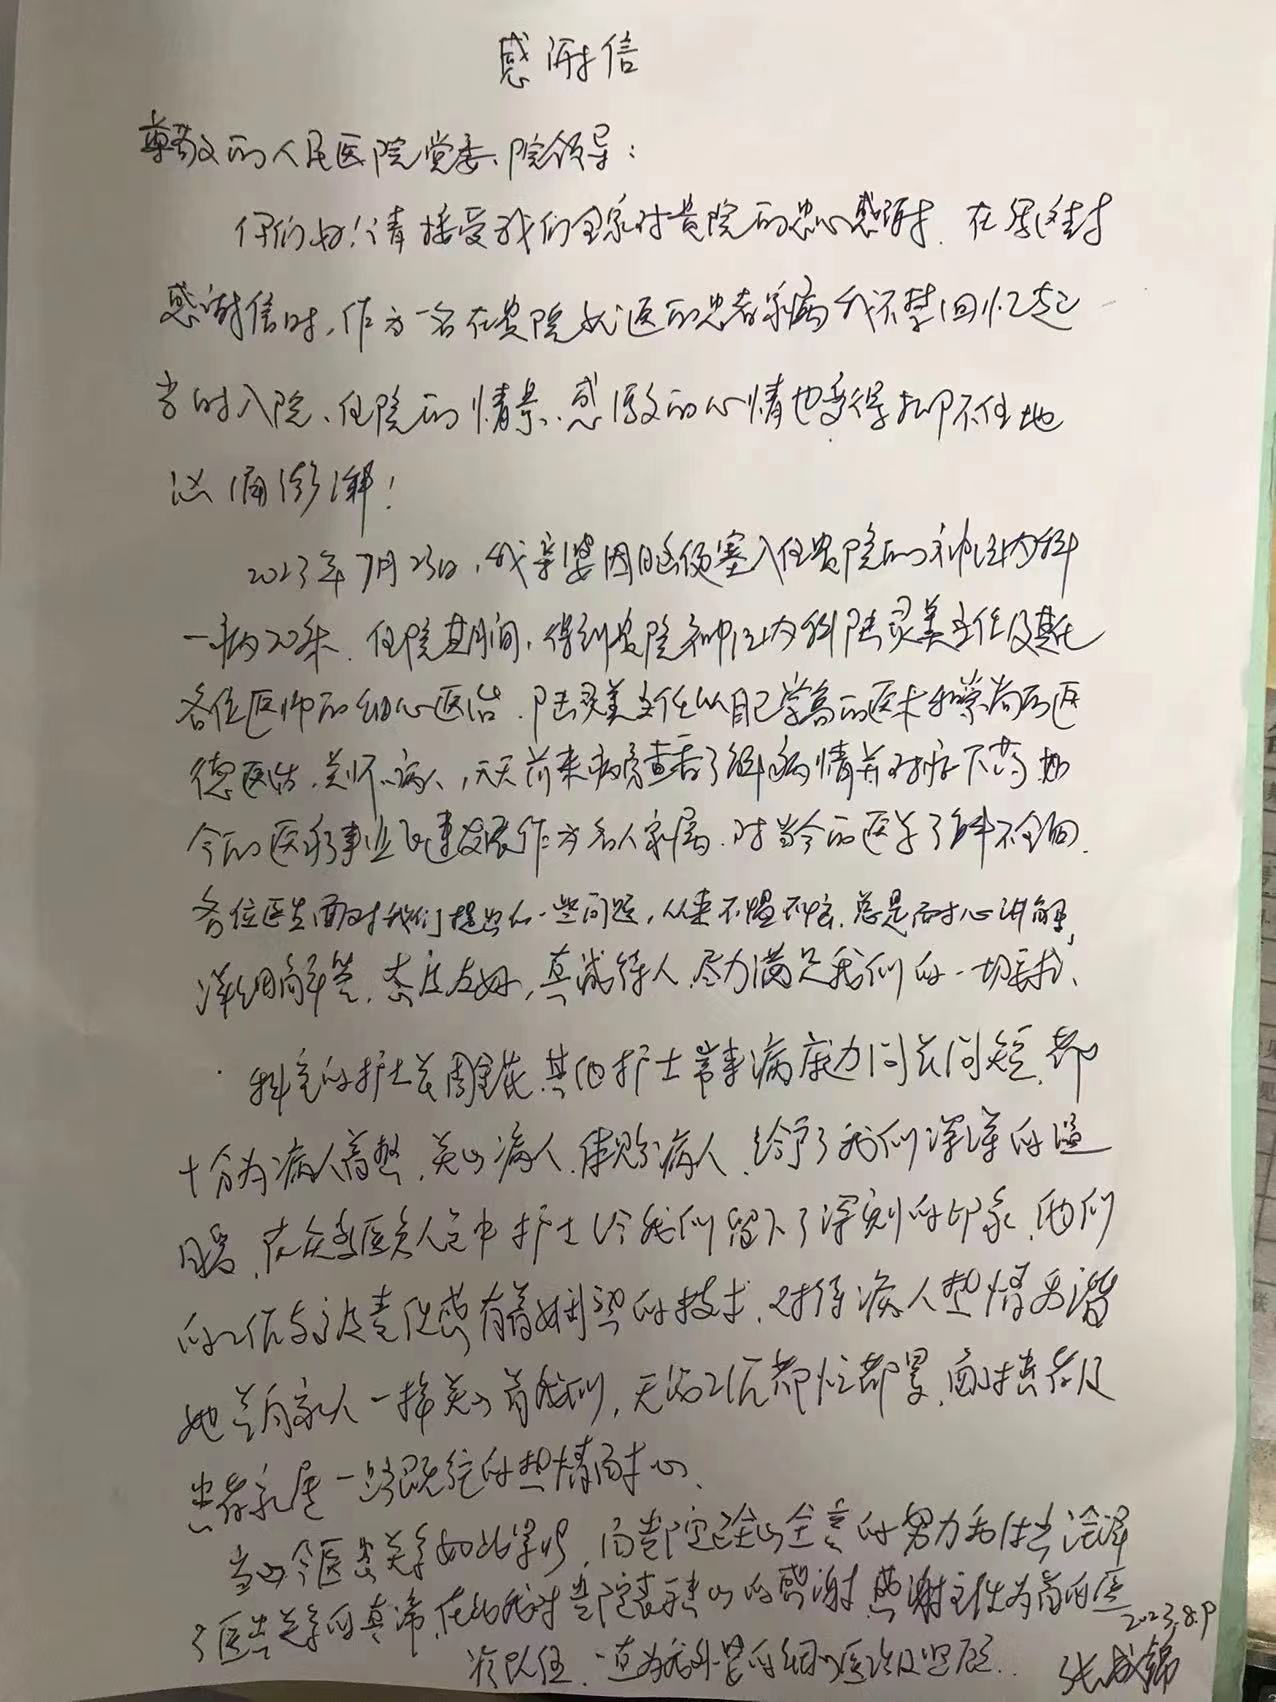 感谢信
尊敬的人民医院党委、院领导：
你们好！请接受我们全家对贵院的忠心感谢．在写这封
感谢信时，作为一名在贵院就医的患者家属我不禁回忆起
当时入院、住院的情景、感激的心情也变得抑不住地
汹涌澎湃！
2023年7月23日，我亲婆因脑梗塞入住贵院的神经内科
一病20床．住院其间，得到贵院神经内科陆灵美主任及其他
各位医师的细心医治．陆灵美主任以自己学高的医术和崇高的医
德医治，关怀病人，天天前来病房查看了解病情并对症下药，如
今的医疗事业飞速发展作为病人家属．对当今的医学了解不全面．
各位医生面对我们提出的一些问题，从来不愠不怒．总是耐心讲解，
详细解答．态度友好，真诚待人．尽力满足我们的一切要求、
科室的护士长周金花．其他护士常来病床边问长问短．都
十分为病人着想．关心病人．体贴病人．给予了我们深深的温
暖．在众多医务人员中护士给我们留下了深刻的印象．她们
的工作责任感有着娴熟的技术．对待病人热情和谐
她像家人一样关心着我们，无论工作都忙都累，面对患者及
患者家属一如既往的热情耐心、
当今医患关系如此紧张，而贵院全心全意的努力和付出诠释
了医患关系的真谛．在此我对贵院表示衷心的感谢．感谢主任为首的医
2023.8.9
疗队伍．一直为我外婆的细心医治及照顾．．
张成锦